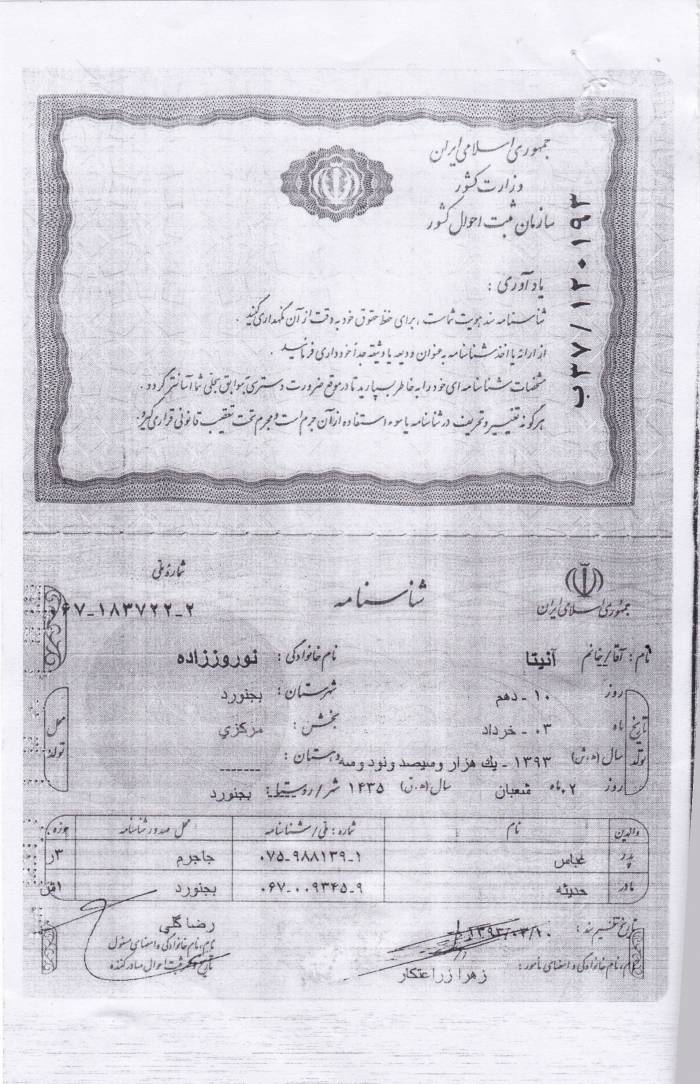 جمهوری اسلامی ایران
وزارت کشور
سازمان ثبت احوال کشور
ب۳۷/۱۲۰۱۹۳
یادآوری :
شناسنامه سند هویت شماست ، برای حفظ حقوق خود به دقت از آن نگهداری کنید .
از ارائه یا اخذ شناسنامه به عنوان ودیعه یا وثیقه جداً خودداری فرمائید .
مشخصات شناسنامه ای خود را به خاطر بسپارید تا در موقع ضرورت دسترسی به سوابق سجلی شما آسانتر گردد .
هرگونه تغییر و تحریف در شناسنامه یا سوء استفاده از آن جرم است و مجرم تحت تعقیب قانونی قرار می گیرد.
جمهوری اسلامی ایران
شناسنامه
شماره ملی
۰۶۷-۱۸۳۷۲۲-۲
نام : آقا/خانم آنیتا نام خانوادگی : نوروززاده
تاریخ تولد
روز ۱۰ - دهم
شهرستان : بجنورد
ماه ۰۳ - خرداد
بخش : مرکزي
محل تولد
سال (ه.ش) ۱۳۹۳ - یك هزار وسیصد ونود وسه دهستان : ------
روز ۰۲ ماه شعبان سال (ه.ق) ۱۴۳۵ شهر/روستا: بجنورد
والدین نام شماره : ملی/شناسنامه محل صدور شناسنامه حوزه
پدر عباس ۰۷۵-۹۸۸۱۳۹-۱ جاجرم ۳ر
مادر حدیثه ۰۶۷-۰۰۹۳۴۵-۹ بجنورد ۱ش
تاریخ تنظیم سند : ۱۳۹۳/۰۳/۱۰
نام، نام خانوادگی و امضای مأمور : زهرا زراعتکار
رضا گلی
نام، نام خانوادگی و امضای مسئول
ثبت احوال صادر کننده